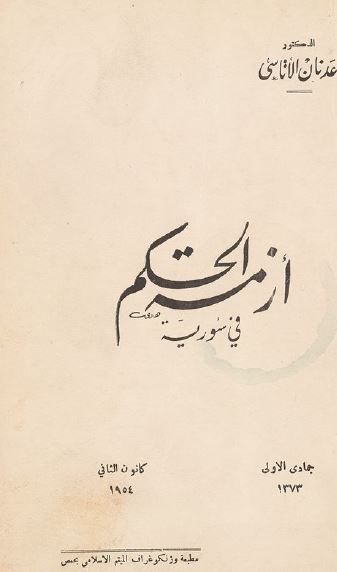 الدكتور
عدنان الأتاسي
أزمة الحكم
في سورية
جمادى الاولى
كانون الثاني
١٣٧٣
١٩٥٤
مطبعة وزنكوغراف الميتم الاسلامي بحمص